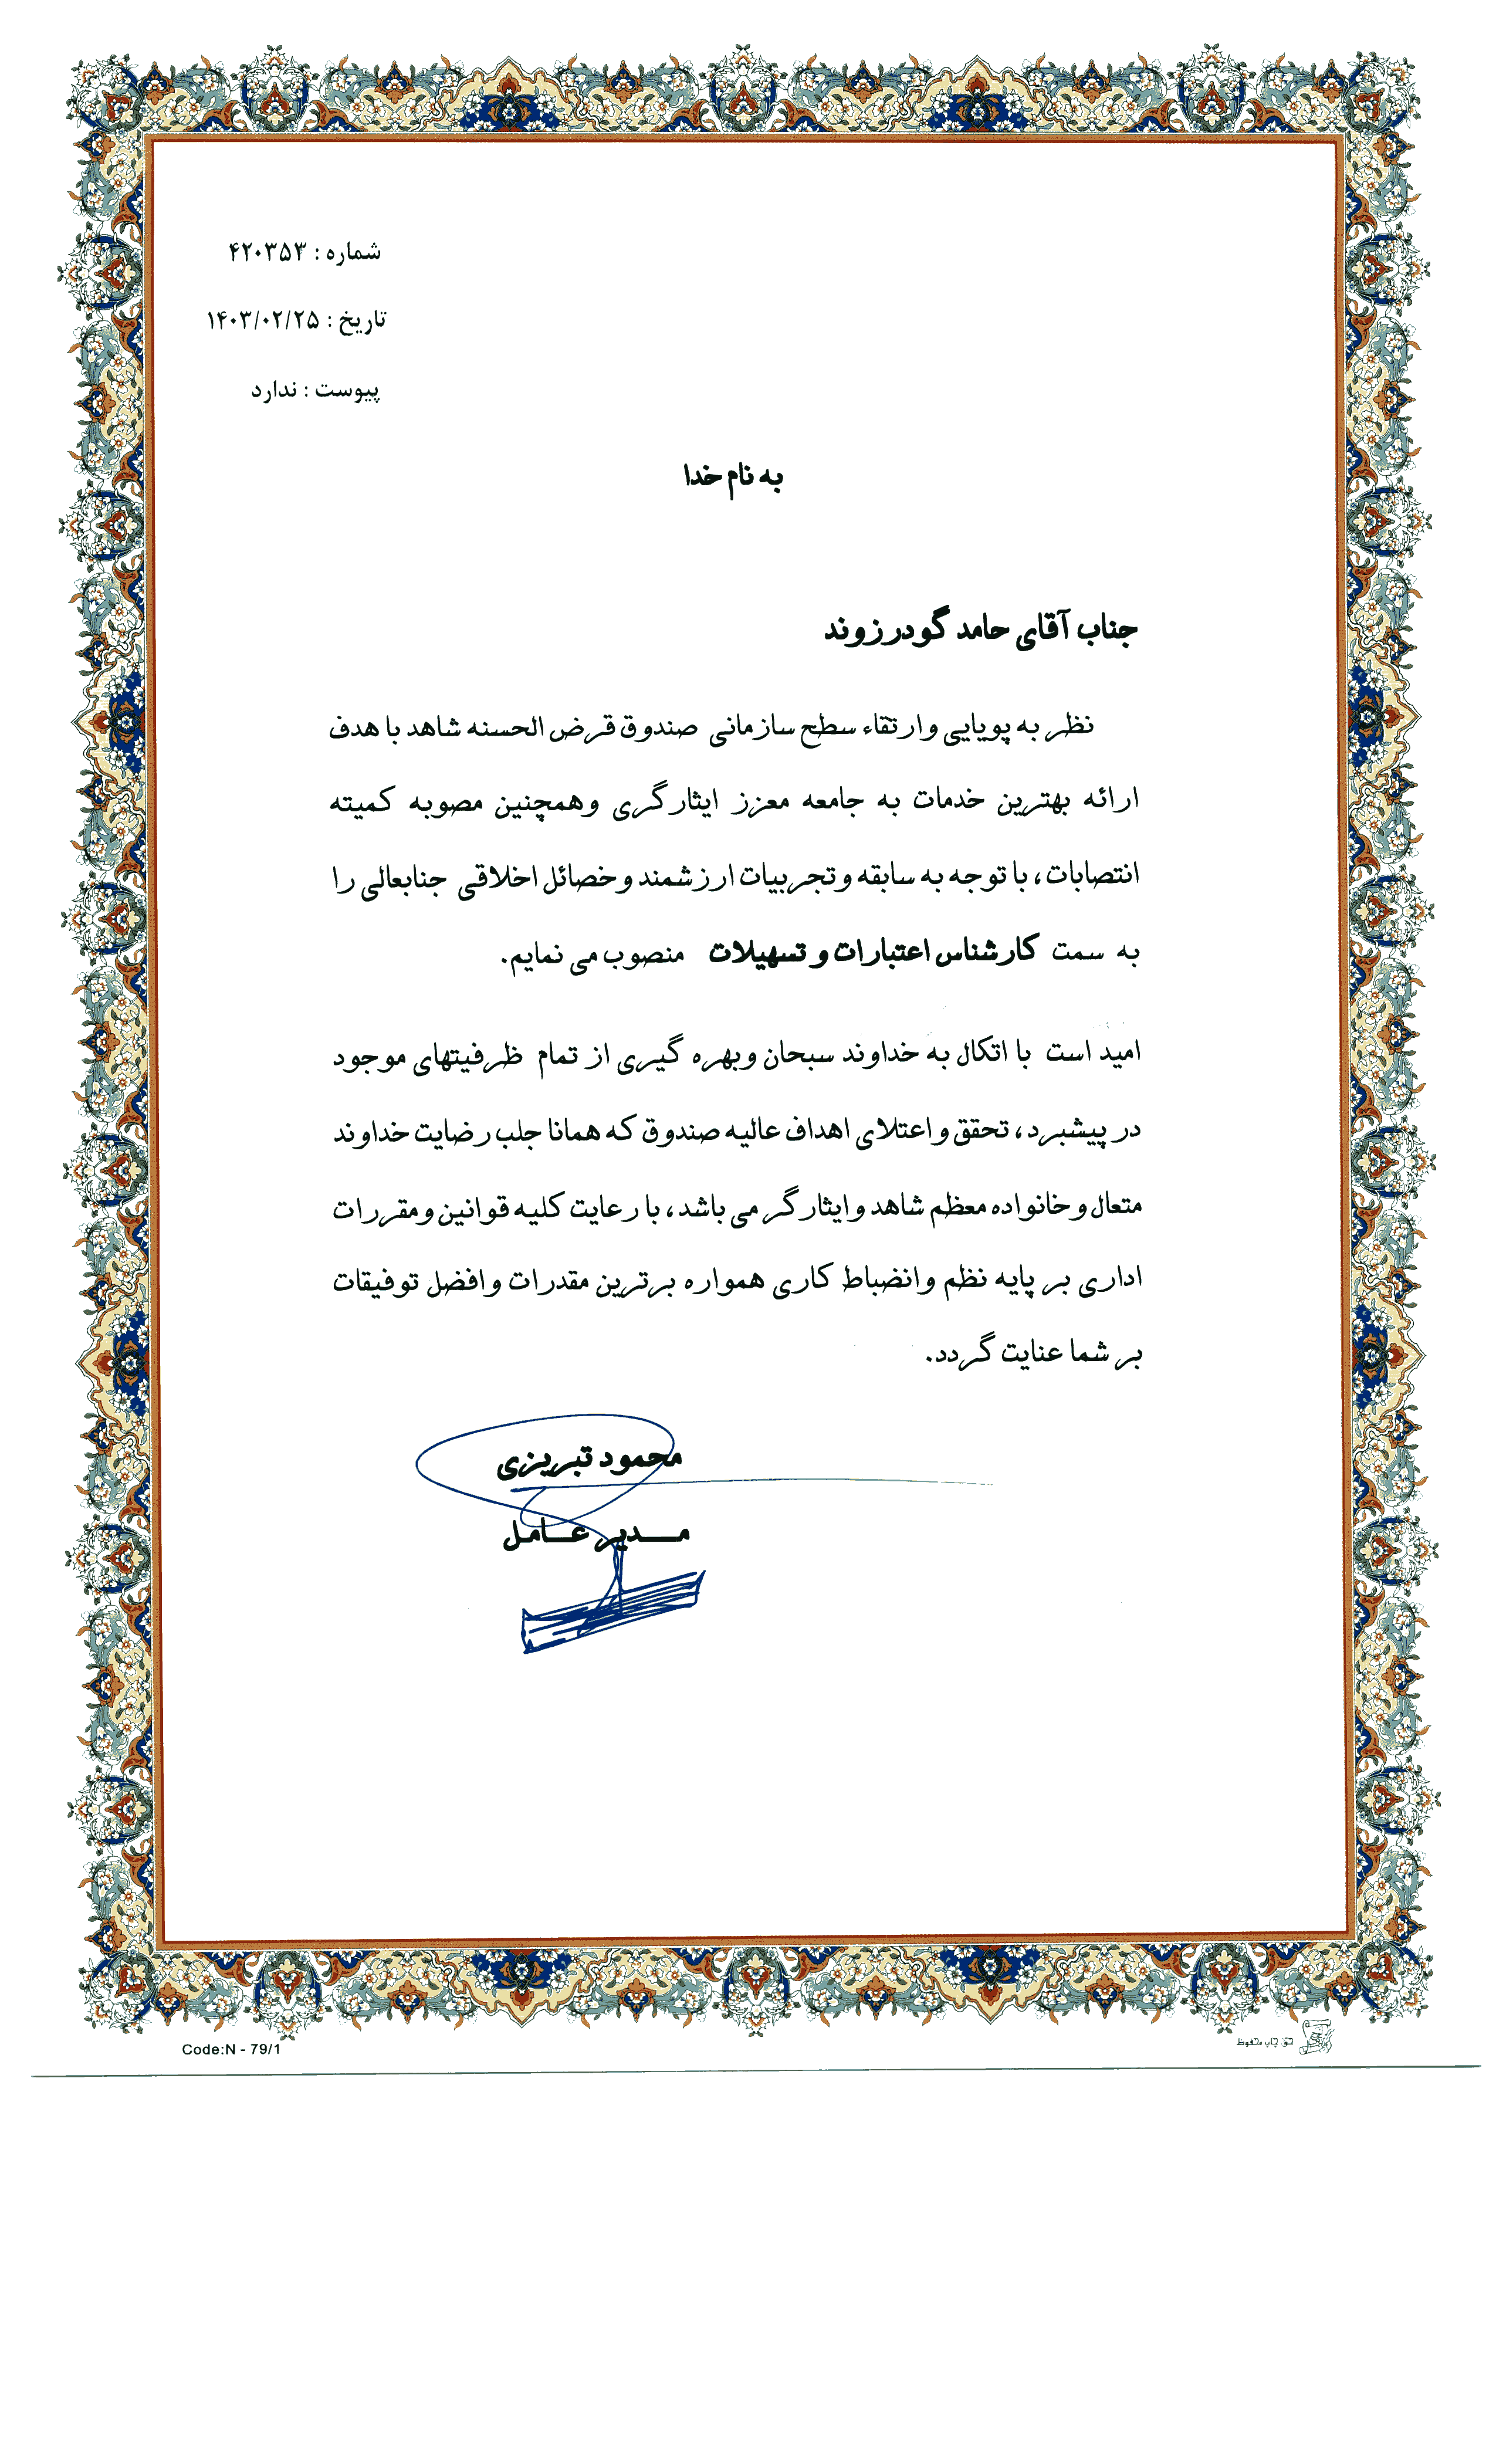 شماره : ۴۲۰۳۵۳
تاریخ : ۱۴۰۳/۰۲/۲۵
پیوست : ندارد
به نام خدا
جناب آقای حامد گودرزوند
نظر به پویایی و ارتقاء سطح سازمانی صندوق قرض الحسنه شاهد با هدف
ارائه بهترین خدمات به جامعه معزز ایثارگری وهمچنین مصوبه کمیته
انتصابات ، با توجه به سابقه و تجربیات ارزشمند و خصائل اخلاقی جنابعالی را
به سمت کارشناس اعتبارات و تسهیلات منصوب می نمایم.
امید است با اتکال به خداوند سبحان وبهره گیری از تمام ظرفیتهای موجود
در پیشبرد ، تحقق و اعتلای اهداف عالیه صندوق که همانا جلب رضایت خداوند
متعال و خانواده معظم شاهد و ایثارگر می باشد ، با رعایت کلیه قوانین و مقررات
اداری بر پایه نظم وانضباط کاری همواره برترین مقدرات و افضل توفیقات
بر شما عنایت گردد.
محمود تبریزی
مـــدیر عـــامـل
Code:N - 79/1
حق چاپ محفوظ